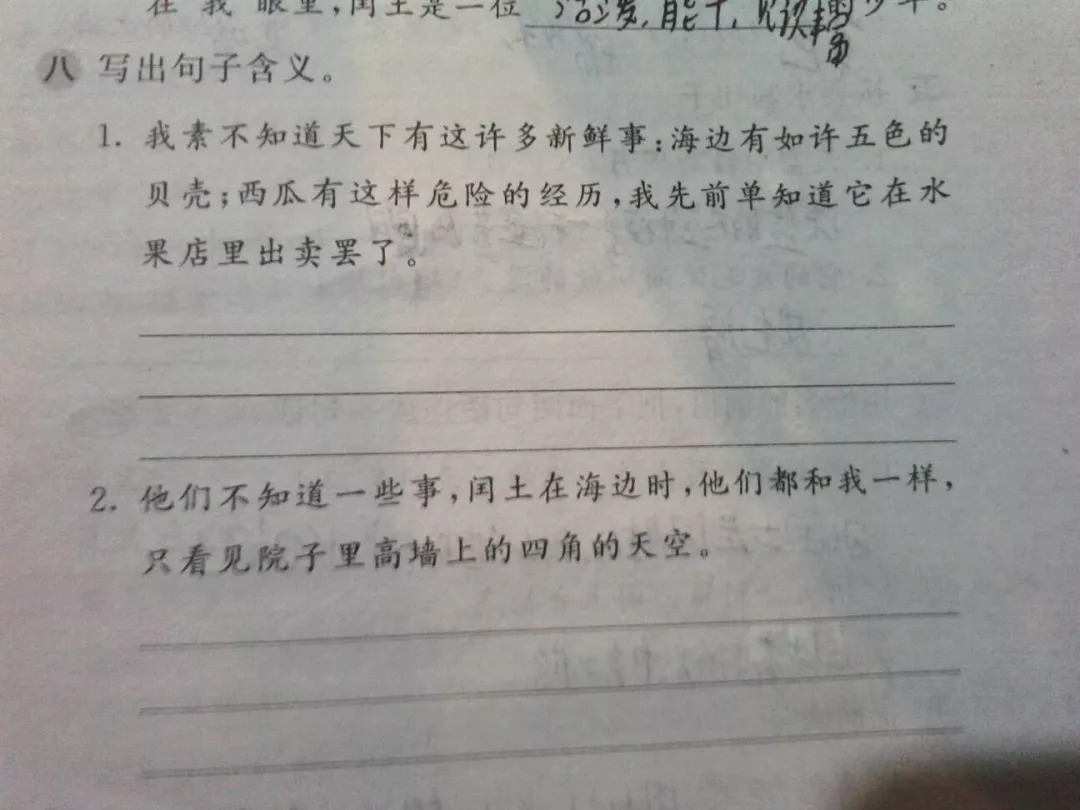 在“我”眼里,闰土是一位 活泼,能干,见识丰富 少年。
八 写出句子含义。
1. 我素不知道天下有这许多新鲜事:海边有如许五色的
贝壳;西瓜有这样危险的经历,我先前单知道它在水
果店里出卖罢了。
2. 他们不知道一些事,闰土在海边时,他们都和我一样,
只看见院子里高墙上的四角的天空。